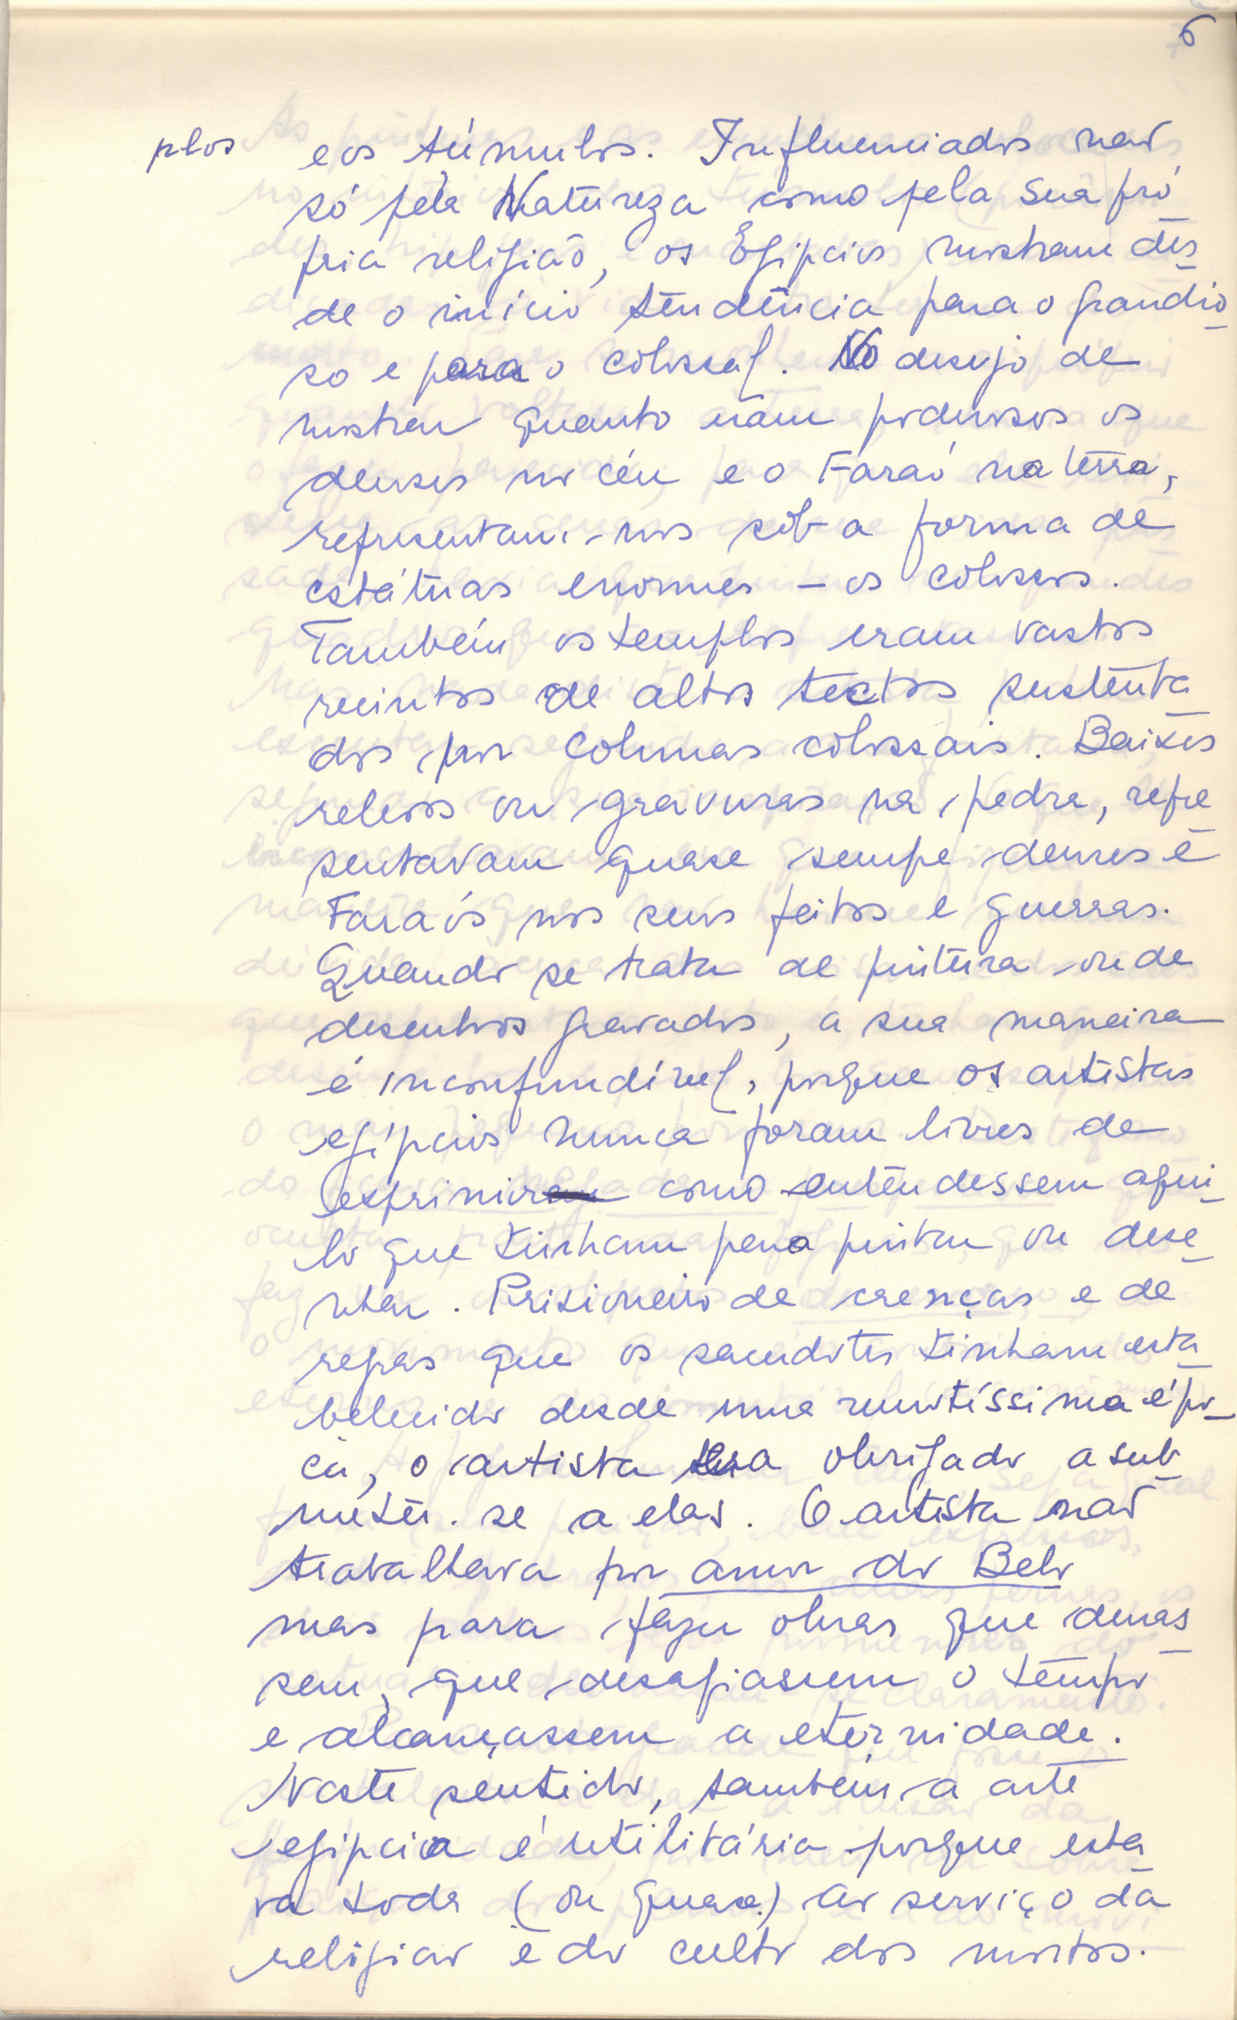 6
plos e os túmulos. Influenciados não
só pela Natureza como pela sua pró
pria religião, os Egípcios mostram des
de o início tendência para o grandio
so e para o colossal. No desejo de
mostrar quanto eram poderosos os
deuses no céu e o Faraó na terra,
representam-nos sob a forma de
estátuas enormes – os colossos.
Também os templos eram vastos
recintos de altos tectos sustenta
dos por colunas colossais. Baixos
relevos ou gravuras na pedra, repre
sentavam quase sempre deuses e
Faraós nos seus feitos e guerras.
Quando se trata de pintura ou de
desenhos gravados, a sua maneira
é inconfundível, porque os artistas
egípcios nunca foram livres de
exprimir como entendessem aqui
lo que tinham para pintar ou dese
nhar. Prisioneiro de crenças e de
regras que os sacerdotes tinham esta
belecido desde uma remotíssima épo
ca, o artista era obrigado a sub
meter-se a elas. O artista não
trabalhava por amor do Belo
mas para fazer obras que duras
sem, que desafiassem o tempo
e alcançassem a eternidade.
Neste sentido, também a arte
egípcia é utilitária porque esta
va toda (ou quase) ao serviço da
religião e do culto dos mortos.